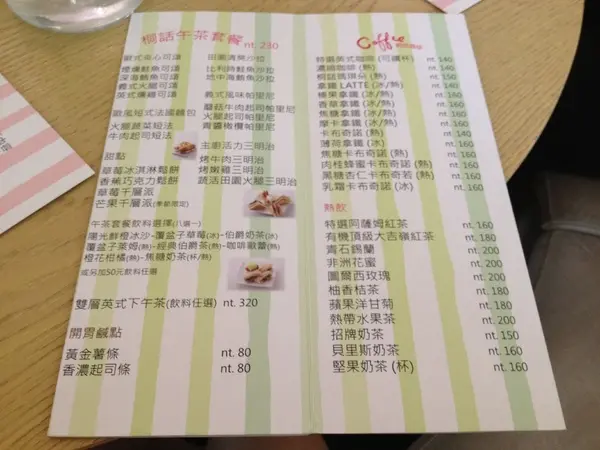 桐話午茶套餐 nt. 230
歐式夾心可頌
燻鮭魚可頌
深海鮪魚可頌
義式火腿可頌
英式燻雞可頌
歐風短式法國麵包
火腿蔬菜短法
牛肉起司短法
甜點
草莓冰淇淋鬆餅
香蕉巧克力鬆餅
草莓千層派
芒果千層派(季節限定)
田園清蔬沙拉
比利時鮭魚沙拉
地中海鮪魚沙拉
義式風味帕里尼
蘑菇牛肉起司帕里尼
火腿起司帕里尼
青醬橄欖帕里尼
主廚活力三明治
烤牛肉三明治
烤嫩雞三明治
蔬活田園火腿三明治
午茶套餐飲料選擇(八選一)
陽光鮮橙冰沙~覆盆子草莓(冰)~伯爵奶茶(冰)
覆盆子萊姆(熱)~經典伯爵茶(熱)~咖啡歐蕾(熱)
橙花柑橘(熱)~焦糖奶茶(杯/熱)
或另加50元飲料任選
雙層英式下午茶(飲料任選) nt. 320
開胃鹹點
黃金薯條 nt. 80
香濃起司條 nt. 80
Coffee
特選英式咖啡 (可續杯) nt. 140
濃縮咖啡 (熱) nt. 140
桐話瑪琪朵 (熱) nt. 150
拿鐵 LATTE (冰/熱) nt. 150
榛果拿鐵 (冰/熱) nt. 160
香草拿鐵 (冰/熱) nt. 160
焦糖拿鐵 (冰/熱) nt. 160
摩卡拿鐵 (冰/熱) nt. 160
卡布奇諾 (熱) nt. 150
薄荷拿鐵 (冰) nt. 160
焦糖卡布奇諾 (熱) nt. 160
肉桂蜂蜜卡布奇諾 (熱) nt. 160
黑糖杏仁卡布奇若 (熱) nt. 160
乳霜卡布奇諾 (冰) nt. 160
熱飲
特選阿薩姆紅茶 nt. 160
有機頂級大吉嶺紅茶 nt. 180
青石錫蘭 nt. 200
非洲花蜜 nt. 200
圖爾西玫瑰 nt. 200
柚香桔茶 nt. 180
蘋果洋甘菊 nt. 180
熱帶水果茶 nt. 200
招牌奶茶 nt. 150
貝里斯奶茶 nt. 160
堅果奶茶 (杯) nt. 160